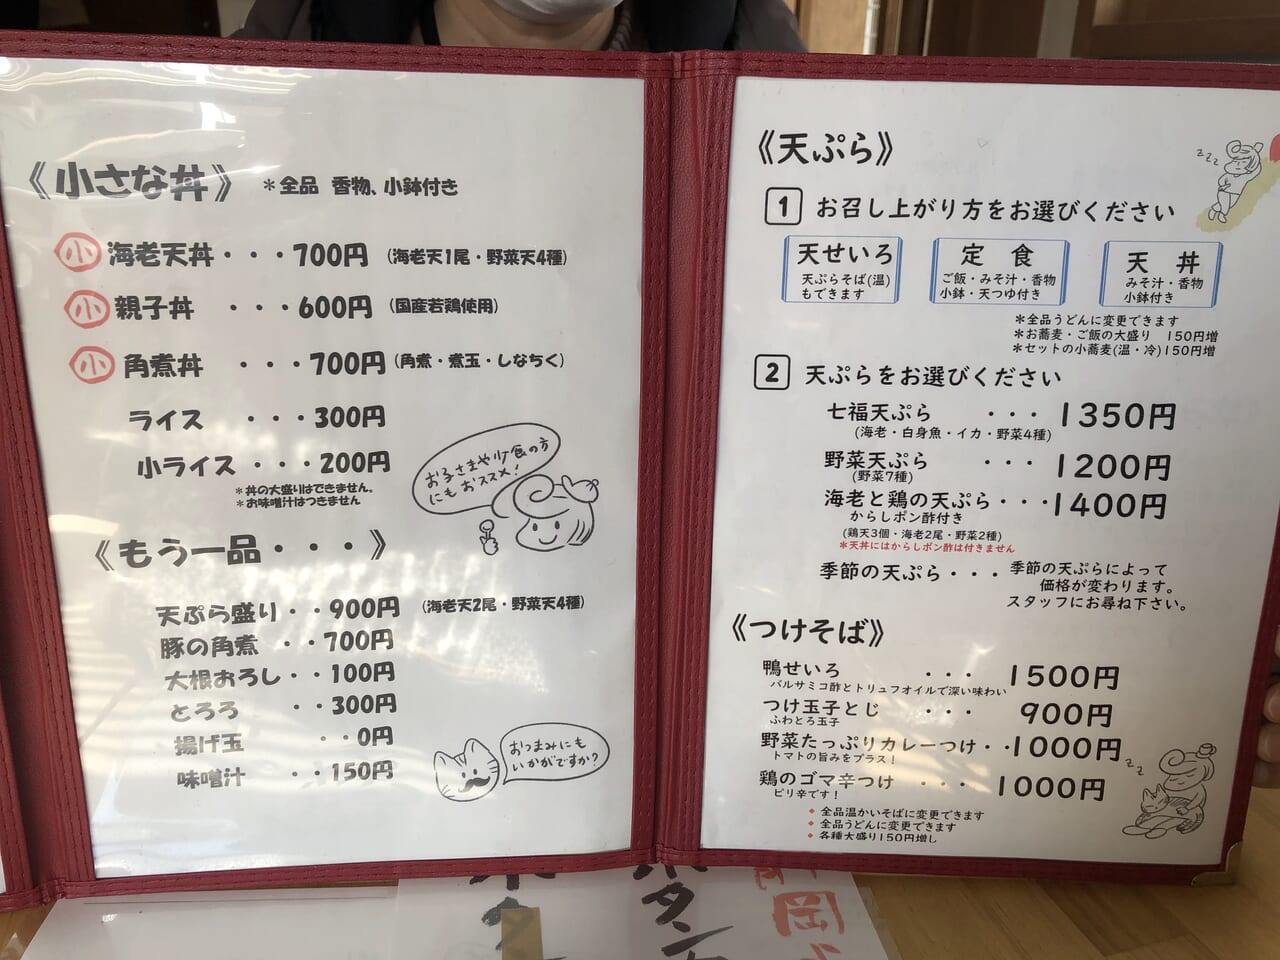 《小さな丼》 ＊全品 香物、小鉢付き
小 海老天丼・・・700円 (海老天1尾・野菜天4種)
小 親子丼 ・・・600円 (国産若鶏使用)
小 角煮丼 ・・・700円 (角煮・煮玉・しなちく)
ライス ・・・300円
小ライス ・・・200円
＊丼の大盛りはできません。
＊お味噌汁はつきません
お子さまや少食の方
にもおススメ!
《もう一品・・・》
天ぷら盛り・・900円 (海老天2尾・野菜天4種)
豚の角煮 ・・700円
大根おろし・・100円
とろろ ・・300円
揚げ玉 ・・0円
味噌汁 ・・150円
おつまみにも
いかがですか?
《天ぷら》
zzz
1 お召し上がり方をお選びください
天せいろ
天ぷらそば(温)
もできます
定 食
ご飯・みそ汁・香物
小鉢・天つゆ付き
天 丼
みそ汁・香物
小鉢付き
＊全品うどんに変更できます
＊お蕎麦・ご飯の大盛り 150円増
＊セットの小蕎麦(温・冷)150円増
2 天ぷらをお選びください
七福天ぷら ・・・1350円
(海老・白身魚・イカ・野菜4種)
野菜天ぷら ・・・1200円
(野菜7種)
海老と鶏の天ぷら・・・1400円
からしポン酢付き
(鶏天3個・海老2尾・野菜2種)
＊天丼にはからしポン酢は付きません
季節の天ぷら・・・季節の天ぷらによって
価格が変わります。
スタッフにお尋ね下さい。
《つけそば》
鴨せいろ ・・・1500円
バルサミコ酢とトリュフオイルで深い味わい
つけ玉子とじ ・・・900円
ふわとろ玉子
野菜たっぷりカレーつけ・・1000円
トマトの旨みをプラス!
zz
鶏のゴマ辛つけ ・・・1000円
ピリ辛です!
◆全品温かいそばに変更できます
◆全品うどんに変更できます
◆各種大盛り150円増し
岡